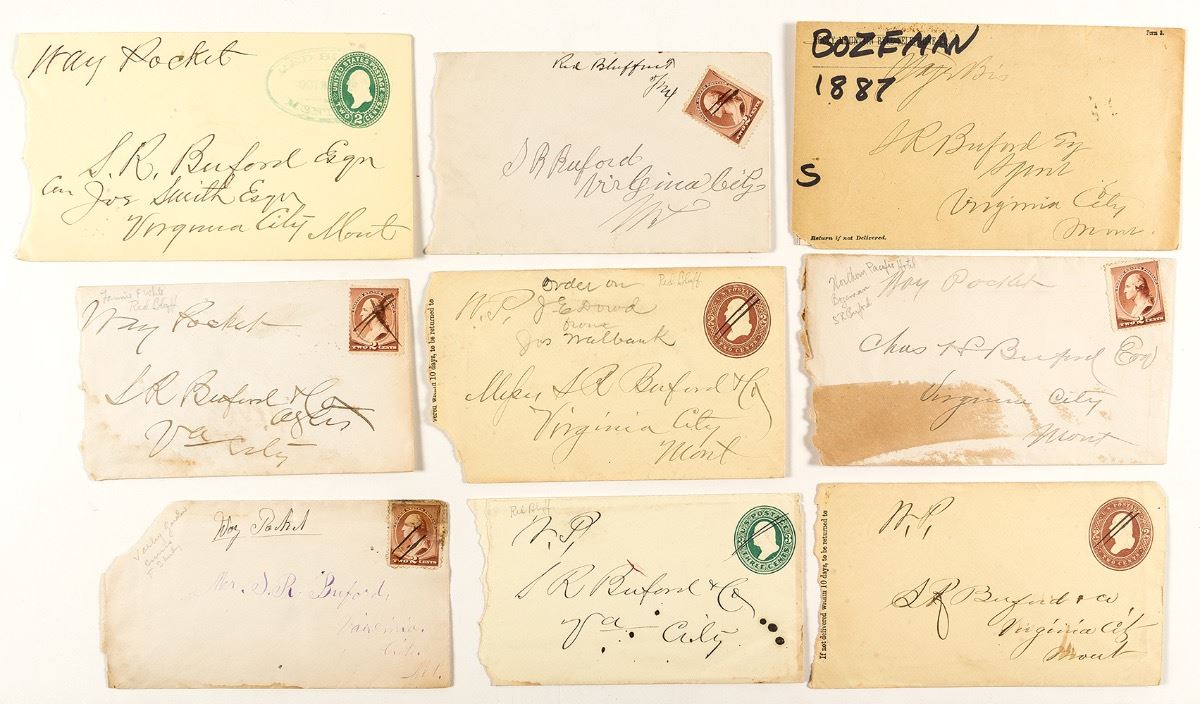 Way Pocket
RED BL
UNITED STATES POSTAGE
TWO CENTS
2
S. R. Buford Esqr
Car Joe Smith Esqr
Virginia City Mont
Red Bluff
Mt
2
S R Buford
Virginia City
Mt
BOZEMAN
1887
S
Form 2.
S R Buford Eq
Agent
Virginia City
Mont.
Return if not Delivered.
Red Bluff
Way Pocket
TWO 2 CENTS
S R Buford & Co
Agts
Va City
W. P,
Order on
J E Dowd
from
Jos Walbank
Red Bluff
U.S. POSTAGE
TWO CENTS
10 days, to be returned to
S R Buford & Co
Virginia City
Mont
Northern Pacific Hotel
Bozeman
S R Buford
Way Pocket
TWO 2 CENTS
Chas H Buford Esq
Virginia City
Mont
Way Pocket
TWO 2 CENTS
Mr. S. R. Buford,
Virginia.
City.
Mt.
Red Bluff
W. P,
U.S. POSTAGE
THREE CENTS
S R Buford & Co
Va City
W. P,
TWO CENTS
If not delivered within 10 days, to be returned to
S R Buford & co
Virginia City
Mont